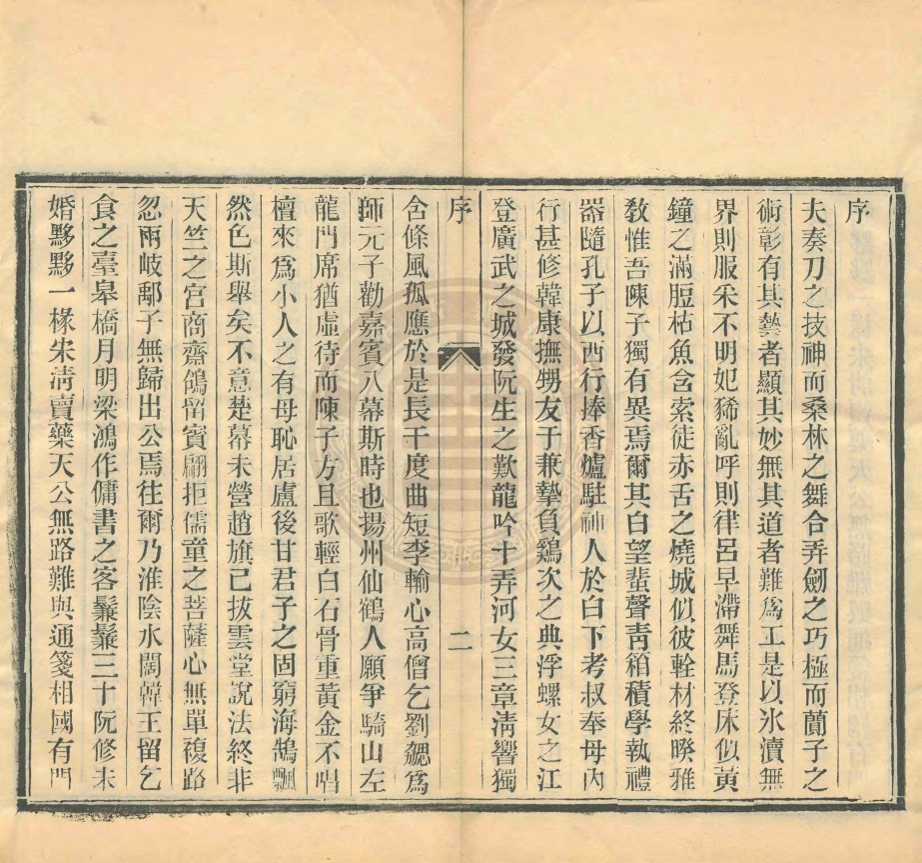 序
夫奏刀之技神而桑林之舞合弄劒之巧極而蘭子之
術彰有其藝者顯其妙無其道者難爲工是以氷瀆無
界則服采不明妃豨亂呼則律呂早滯舞馬登床似黃
鐘之滿脰枯魚含索徒赤舌之燒城似彼輇材終暌雅
敎惟吾陳子獨有異焉爾其白望蜚聲靑箱積學執禮
器隨孔子以西行捧香爐駐神人於白下考叔奉母內
行甚修韓康撫甥友于兼摯負鷄次之典浮螺女之江
登廣武之城發阮生之歎龍吟十弄河女三章淸響獨
序
二
含條風孤應於是長干度曲短李輸心高僧乞劉勰爲
師元子勸嘉賓入幕斯時也揚州仙鶴人願爭騎山左
龍門席猶虛待而陳子方且歌輕白石骨重黃金不唱
檀來爲小人之有母恥居盧後甘君子之固窮海鵠飄
然色斯舉矣不意楚幕未營趙旗已拔雲堂說法終非
天竺之宮商齋鴿留賓翩拒儒童之菩薩心無單複路
忽兩岐鄢子無歸出公焉往爾乃淮陰水闊韓王留乞
食之臺皋橋月明梁鴻作傭書之客鬖鬖三十阮修未
婚夥夥一椽宋淸賣藥天公無路難與通箋相國有門